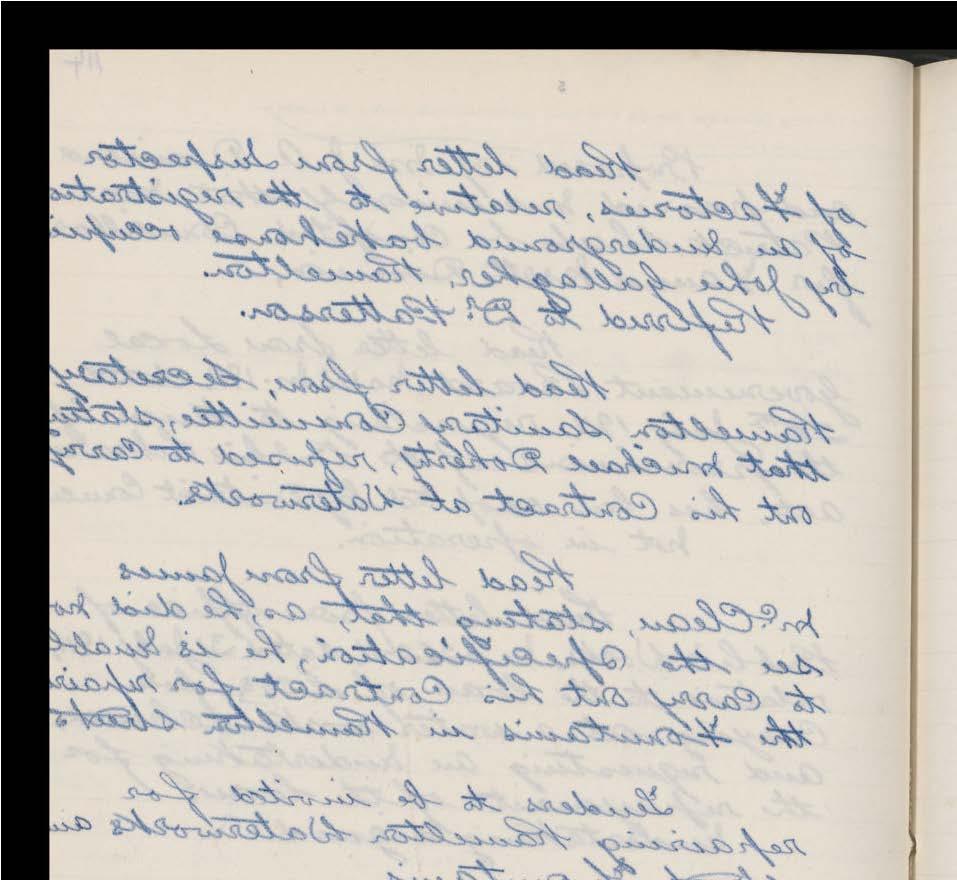 114
Read letter from Inspector
of Factories, relative to the registratio
of an Underground bakehouse occupie
by John Gallagher, Ramelton.
Referred to Dr. Patterson.
Read letter from, Secretary
Ramelton Sanitary Committee, stating
that Michael Doherty, refused to Carry
out his Contract at Waterworks.
Read letter from James
McClean, stating that, as, he did no
see the Specification, he is Unabl
to Carry out his Contract for repairi
the Fountains in Ramelton streets
Tenders to be invited for
repairing Ramelton Waterworks an
Fountains